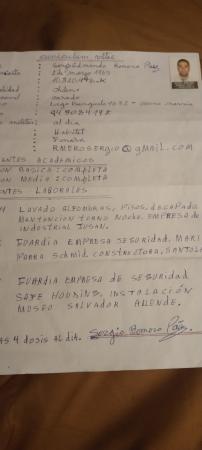 curriculum vitae
: Sergio Edmundo Romero Páez
: 24 marzo 1963
: 10.820.498-K
: chileno
: casado
: 94 9084198
: al dia
: Habitat
: Fonasa
: RMEROSERGIO@gmail.com
ENTES ACADEMICOS
ON BASICA : COMPLETA
ON MEDIA : COMPLETA
ENTES LABORALES
LAVADO ALFOMBRAS, PISOS, DECAPADO
MANTENCION TURNO NOCHE. EMPRESA DE
INDUSTRIAL JUSAN.
GUARDIA EMPRESA SEGURIDAD, MARI
PARRA SCHMID, CONSTRUCTORA, SANTOL
GUARDIA EMPRESA DE SEGURIDAD
SAFE HOUDING, INSTALACIÓN
MUSEO SALVADOR ALLENDE.
AS 4 DOSIS AL DIA. Sergio Romero Páez